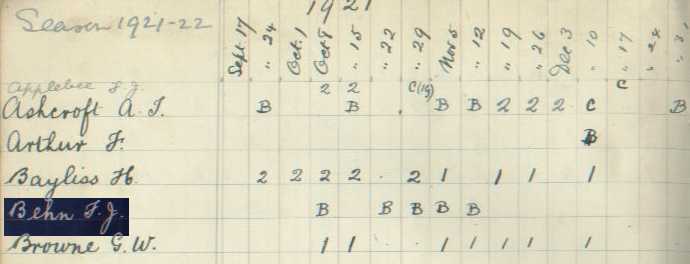 1921
Season 1921-22
Sept. 17 " 24 Oct. 1 Oct 8 " 15 " 22 " 29 Nov 5 " 12 " 19 " 26 Dec 3 " 10 " 17 " 24 " 31
Applebee F. J. 2 2 C(1g) C
Ashcroft A. T. B B . B B 2 2 2 C B
Arthur F. B
Bayliss H. 2 2 2 2 . 2 1 1 1 1
Behn F. J. B B B B B
Browne G. W. 1 1 . . 1 1 1 1 1